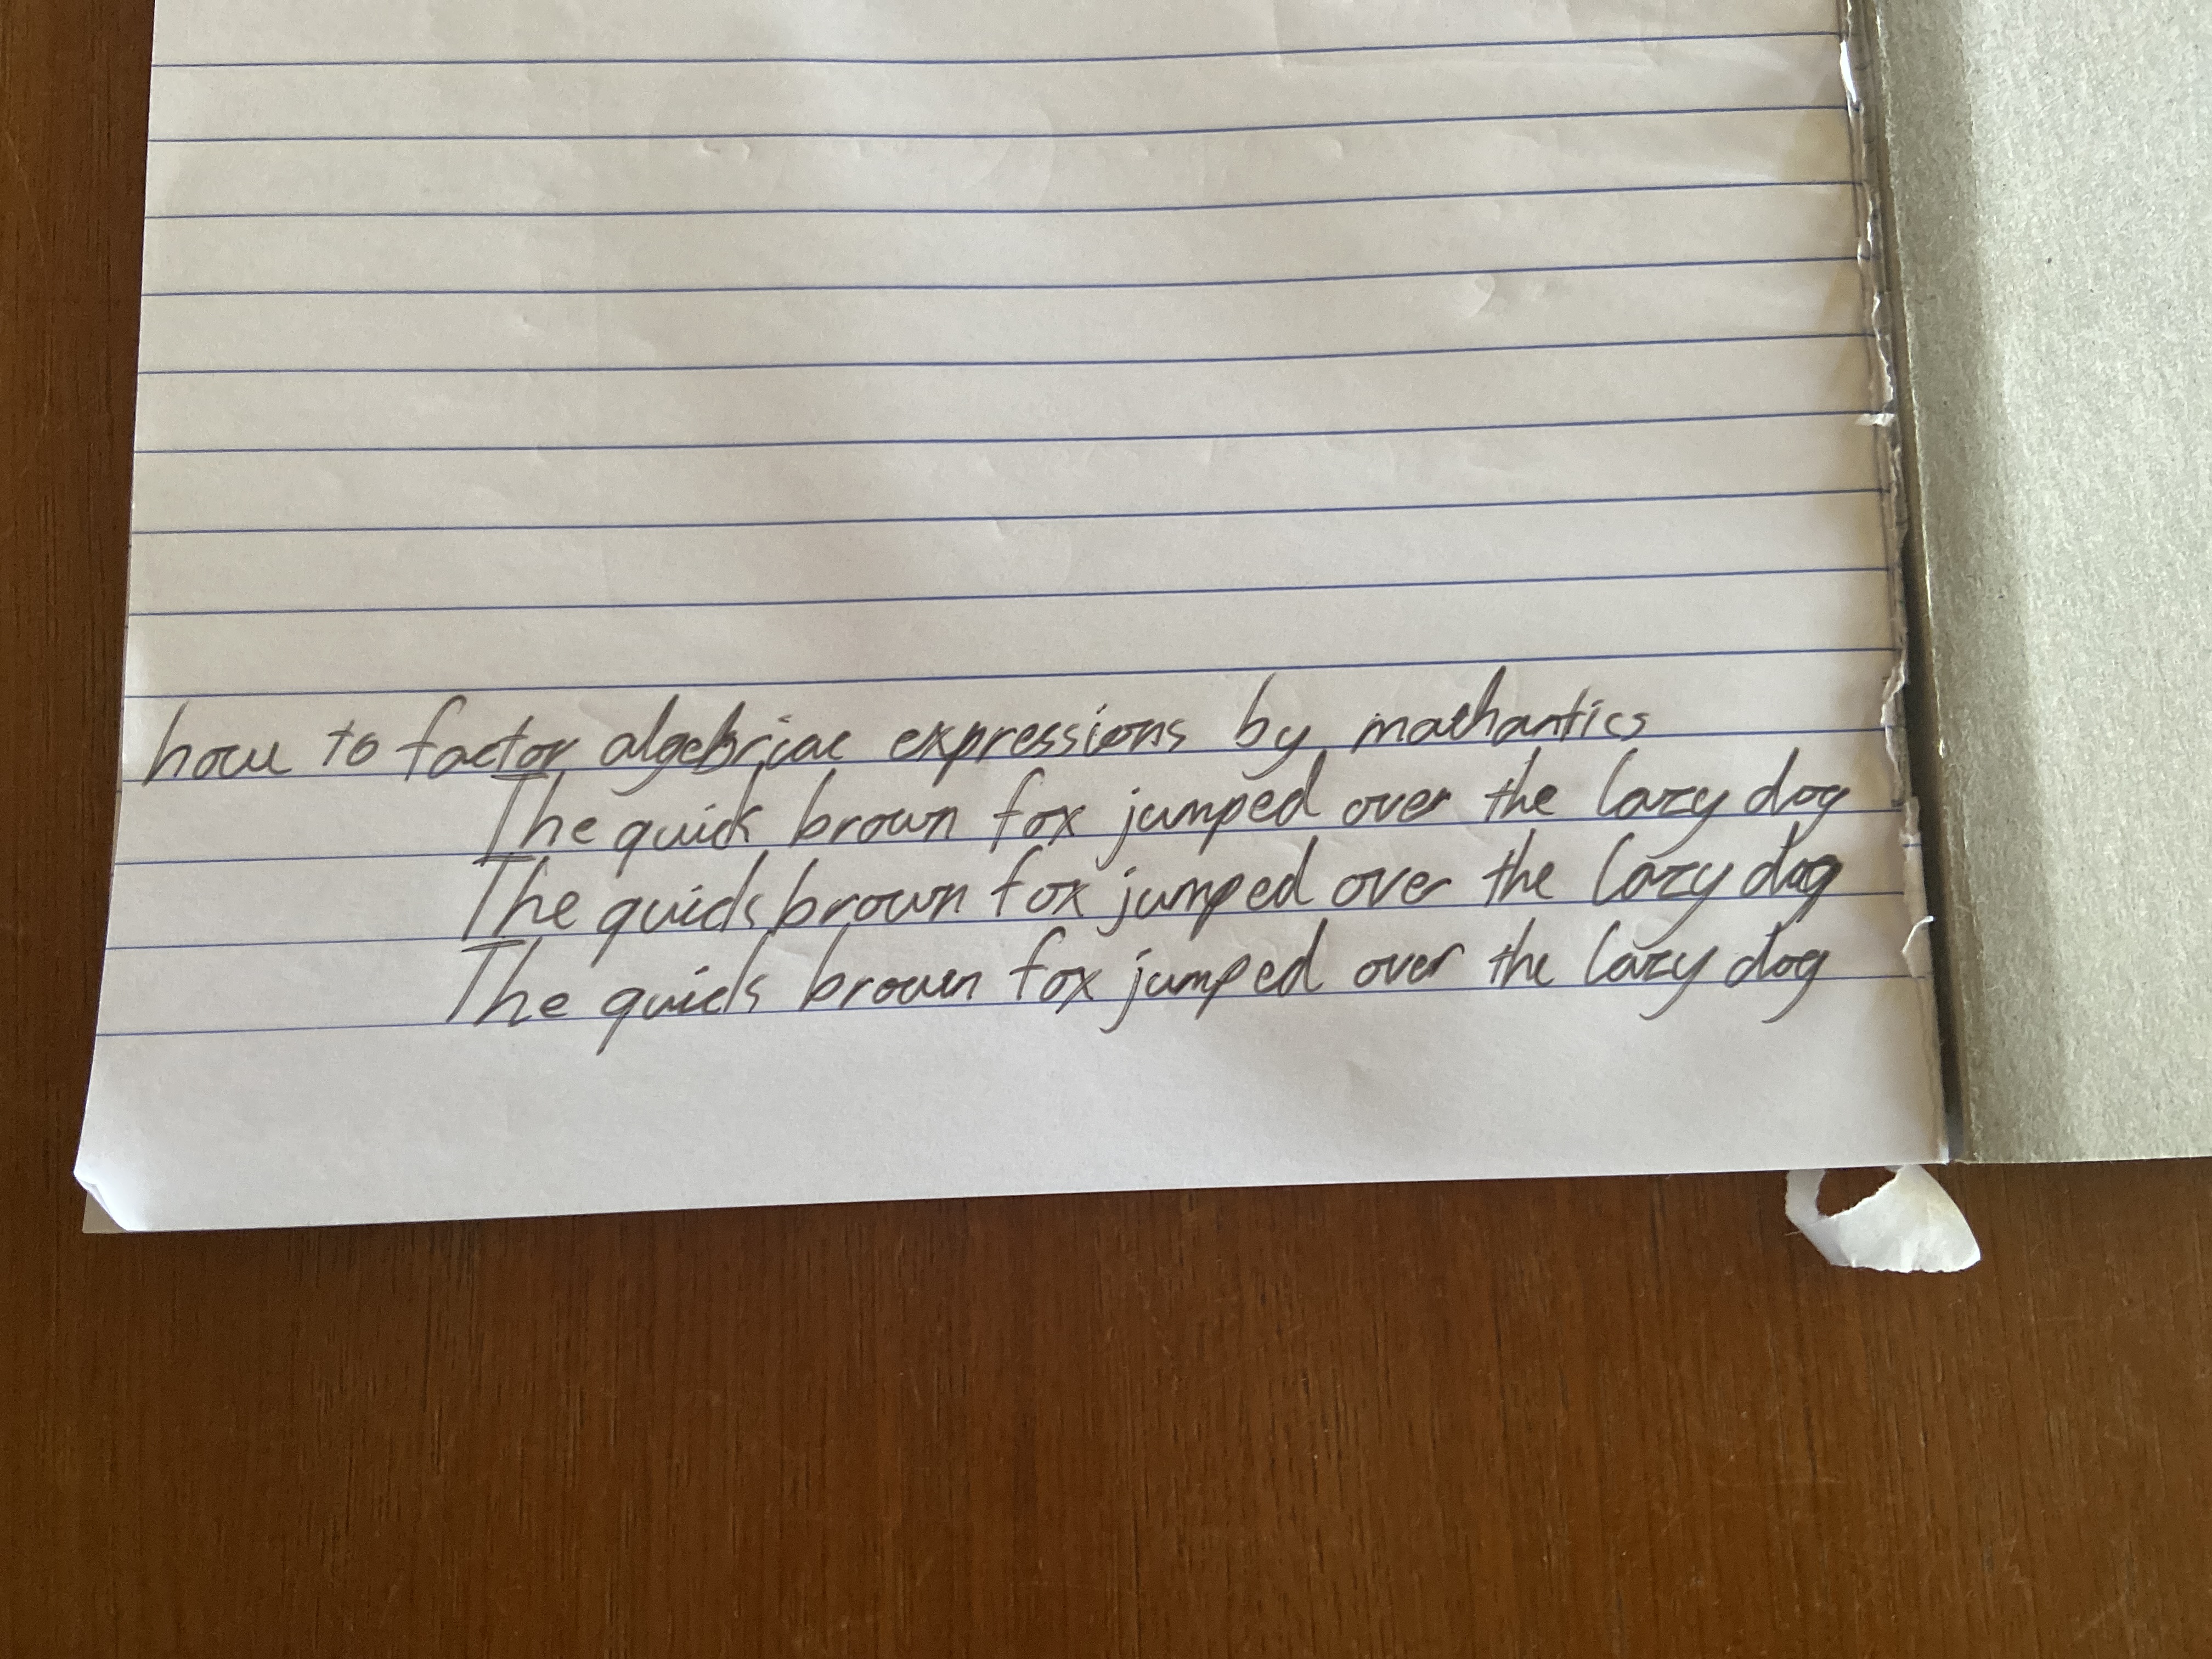 how to factor algebriac expressions by mathantics
The quick brown fox jumped over the lazy dog
The quick brown fox jumped over the lazy dog
The quick brown fox jumped over the lazy dog